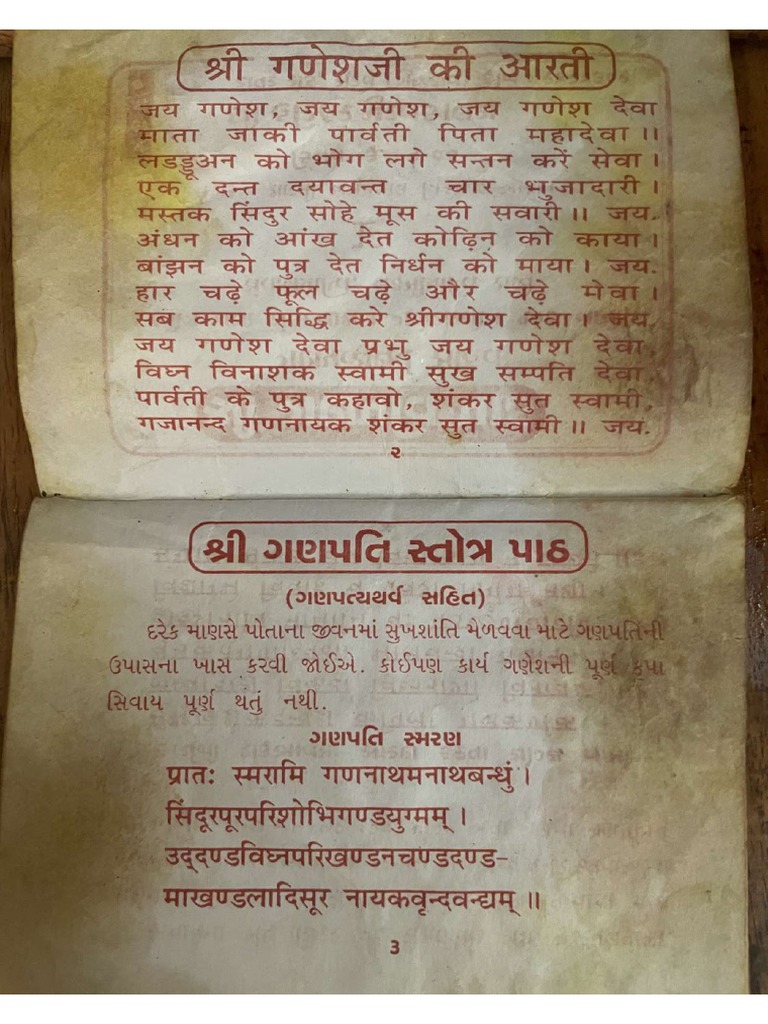 श्री गणेशजी की आरती
जय गणेश, जय गणेश, जय गणेश देवा
माता जाकी पार्वती पिता महादेवा ।।
लडड्डूअन को भोग लगे सन्तन करें सेवा ।
एक दन्त दयावन्त चार भुजादारी ।
मस्तक सिंदुर सोहे मूस की सवारी ।। जय.
अंधन को आंख देत कोढ़िन को काया ।
बांझन को पुत्र देत निर्धन को माया । जय.
हार चढ़े फूल चढ़े और चढ़े मेवा ।
सब काम सिद्धि करे श्रीगणेश देवा । जय.
जय गणेश देवा प्रभु जय गणेश देवा,
विघ्न विनाशक स्वामी सुख सम्पति देवा,
पार्वती के पुत्र कहावो, शंकर सुत स्वामी,
गजानन्द गणनायक शंकर सुत स्वामी ।। जय.
२
શ્રી ગણપતિ સ્તોત્ર પાઠ
(ગણપત્યથર્વ સહિત)
દરેક માણસે પોતાના જીવનમાં સુખશાંતિ મેળવવા માટે ગણપતિની
ઉપાસના ખાસ કરવી જોઈએ. કોઈપણ કાર્ય ગણેશની પૂર્ણ કૃપા
સિવાય પૂર્ણ થતું નથી.
ગણપતિ સ્મરણ
प्रातः स्मरामि गणनाथमनाथबन्धुं ।
सिंदूरपूरपरिशोभिगण्डयुग्मम् ।
उद्दण्डविघ्नपरिखण्डनचण्डदण्ड-
माखण्डलादिसूर नायकवृन्दवन्द्यम् ॥
૩